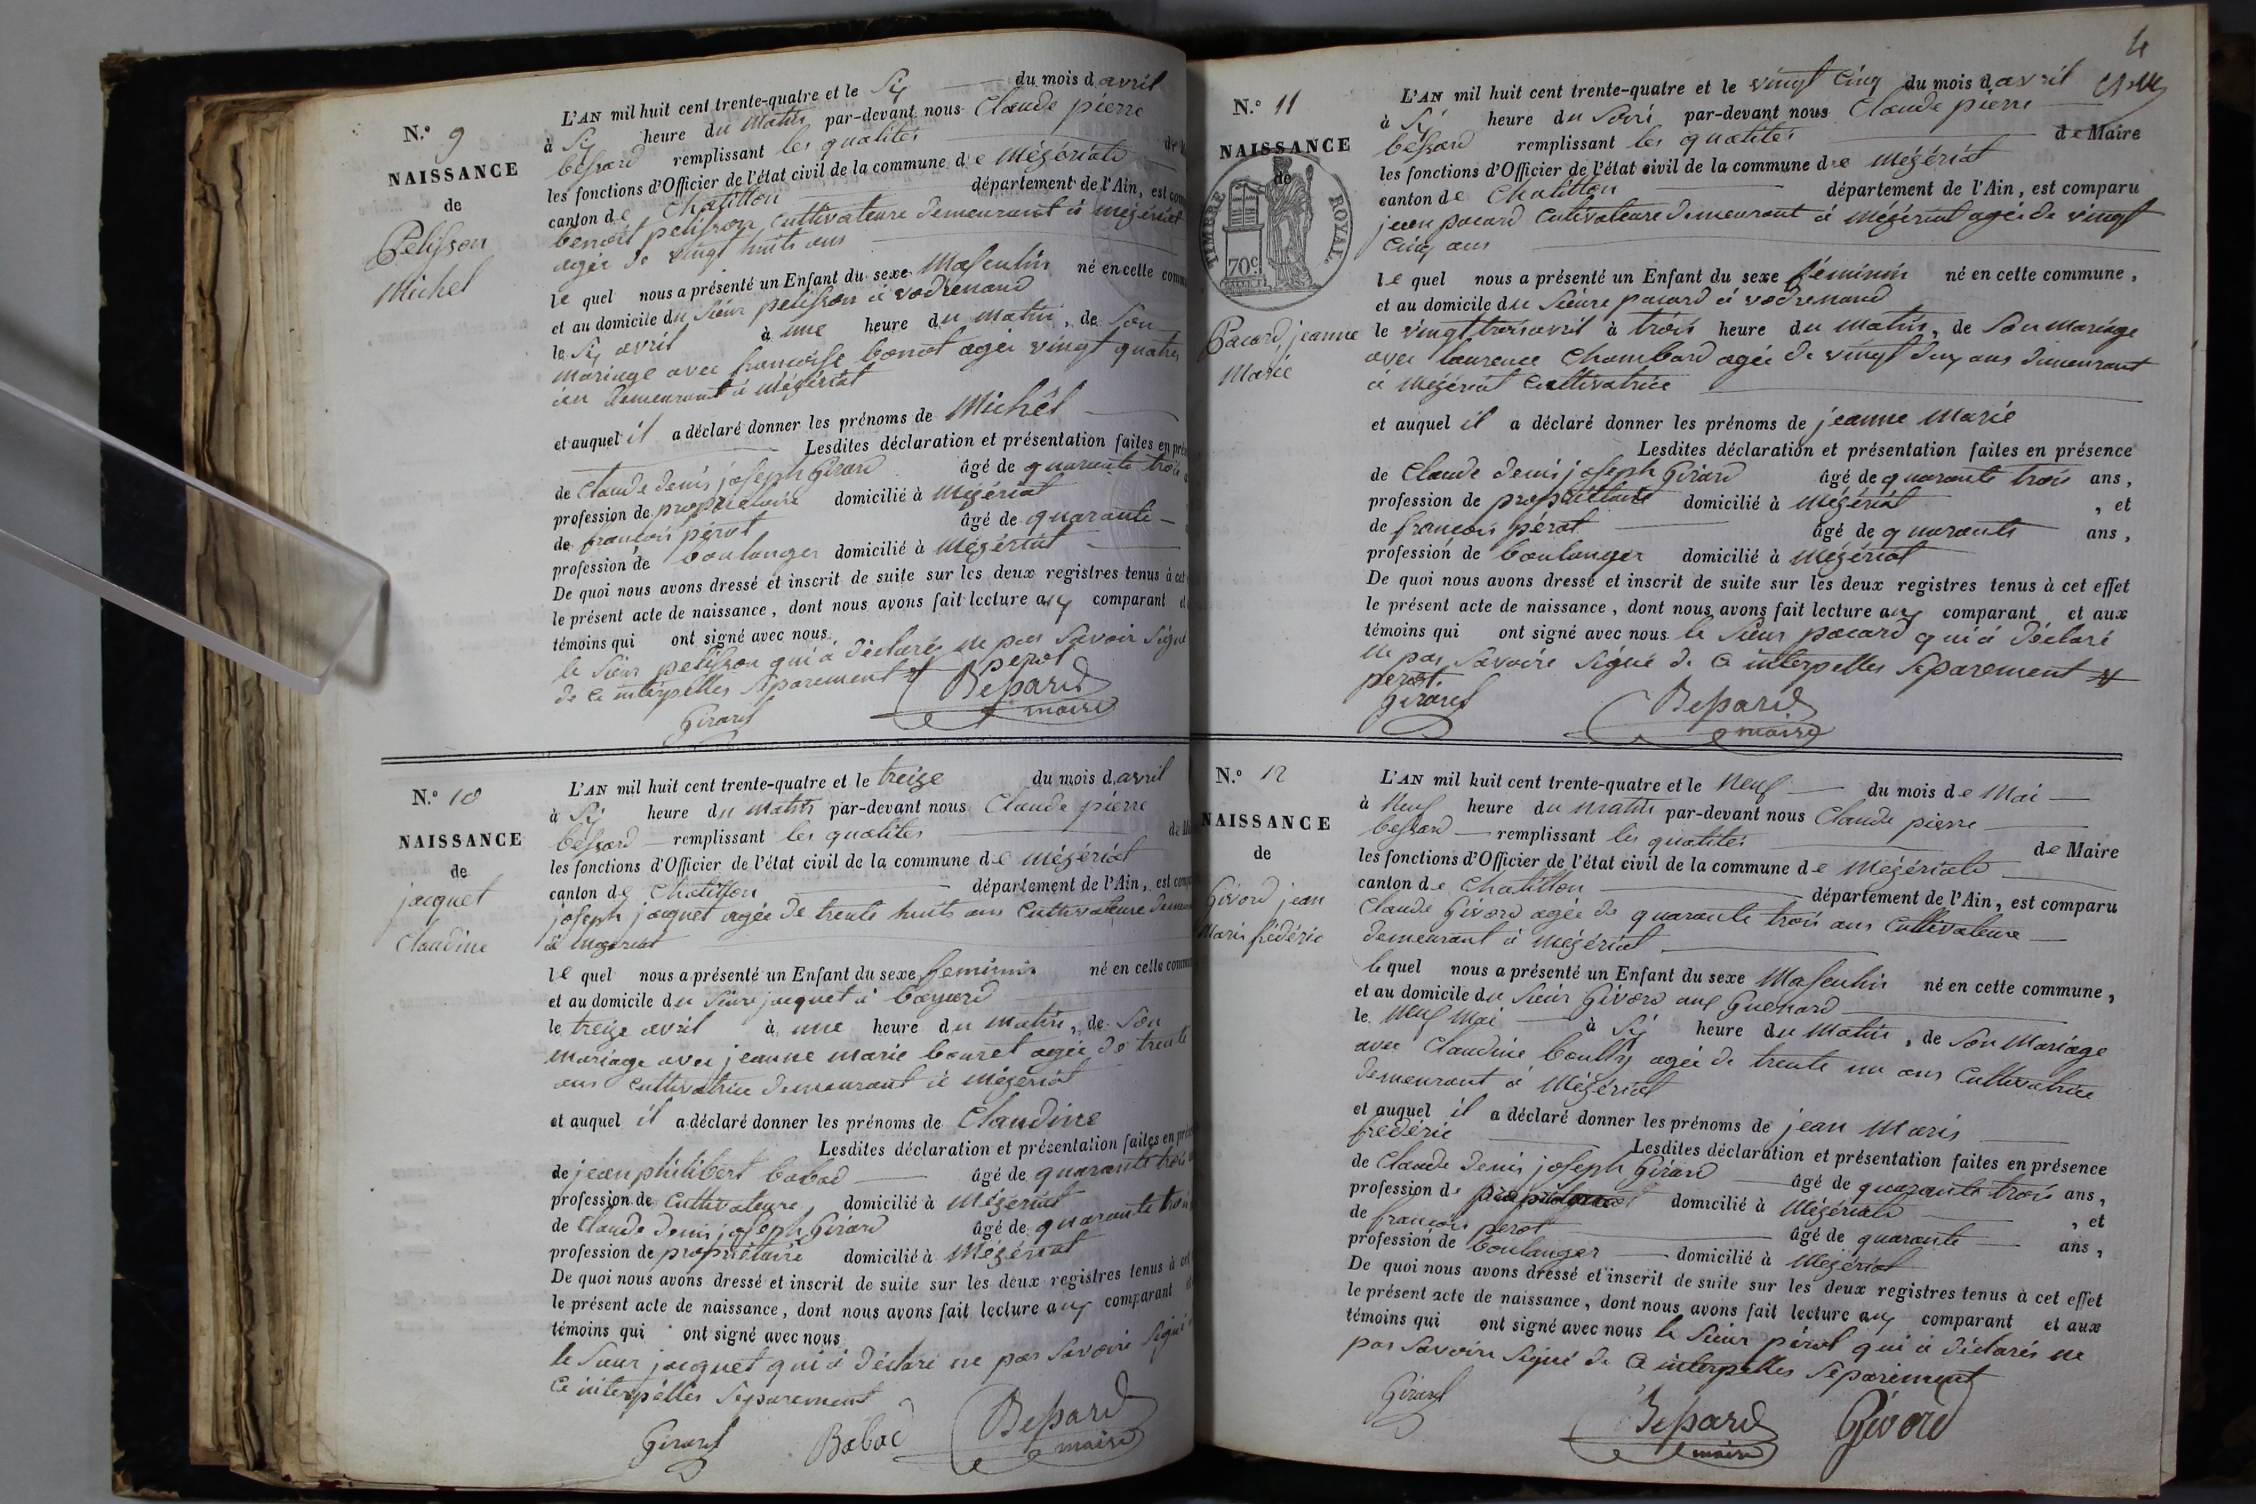 N.º 9
NAISSANCE
de
Pelisson
Michel
L'AN mil huit cent trente-quatre et le Six du mois d avril
à Six heure du matin par-devant nous Claude pierre
bessard remplissant les qualités
les fonctions d'Officier de l'état civil de la commune de Mézériate
canton de Chatillon département de l'Ain, est
benoit pelisson cultivateure demeurant à mézériat
agée de vingt huits ans
le quel nous a présenté un Enfant du sexe Masculin né en cette
et au domicile du Sieur pelisson à vodrenand
le Six avril à une heure du matin, de Son
mariage avec francoise bonnot agée vingt quatre
demeurant à Mézériat
et auquel il a déclaré donner les prénoms de Michel
Lesdites déclaration et présentation faites en
de Claude denis joseph Girard âgé de quarante trois
profession de propriétaire domicilié à Mézériat
de francois pérot âgé de quarante
profession de boulanger domicilié à Mézériat
De quoi nous avons dressé et inscrit de suite sur les deux registres tenus à cet
le présent acte de naissance, dont nous avons fait lecture aux comparant et
témoins qui ont signé avec nous
le Sieur pelisson qui à déclaré ne pas Savoir Signé
de ce interpelles Separement
perot
Girard
Bessard
maire
N.º 10
NAISSANCE
de
jacquet
Claudine
L'AN mil huit cent trente-quatre et le treize du mois d avril
à Six heure du matin par-devant nous Claude pierre
bessard remplissant les qualites
les fonctions d'Officier de l'état civil de la commune de Mézériat
canton de Chatillon département de l'Ain, est
joseph jacquet agée de trente huits ans Cultivateure
à
le quel nous a présenté un Enfant du sexe feminin né en cette
et au domicile du Sieure jacquet à bayard
le treize avril à une heure du matin, de Son
mariage avec jeanne marie bouret agée de trente
ans cultivatrice demeurant à Mézériat
et auquel il a déclaré donner les prénoms de Claudine
Lesdites déclaration et présentation faites en
de jean philibert babad âgé de quarante trois
profession de Cultivateure domicilié à Mézériat
de Claude denis joseph Girard âgé de quarante trois
profession de propriétaire domicilié à Mézériat
De quoi nous avons dressé et inscrit de suite sur les deux registres tenus à cet
le présent acte de naissance, dont nous avons fait lecture aux comparant
témoins qui ont signé avec nous
le Sieur jacquet qui à déclaré ne pas Savoire Signé
Ce interpélles Separement
Girard
Babad
Bessard
maire
4
N.º 11
NAISSANCE
de
TIMBRE ROYAL
70 c
Pacard jeanne
Marie
L'AN mil huit cent trente-quatre et le vingt cinq du mois d avril
à Six heure du Soir par-devant nous Claude pierre
bessard remplissant les qualités de Maire
les fonctions d'Officier de l'état civil de la commune de Mézériat
canton de Chatillon département de l'Ain, est comparu
jean pacard Cultivateure demeurant à Mézériat agée de vingt
Cinq ans
le quel nous a présenté un Enfant du sexe féminin né en cette commune,
et au domicile du Sieure pacard à vodrenand
le vingt trois avril à trois heure du matin, de Son Mariage
avec laurence Chambard agée de vingt deux ans demeurant
à Mézériat Cultivatrice
et auquel il a déclaré donner les prénoms de jeanne Marie
Lesdites déclaration et présentation faites en présence
de Claude denis joseph Girard âgé de quarante trois ans,
profession de propriétaire domicilié à Mézériat, et
de francois pérot âgé de quarante ans,
profession de boulanger domicilié à Mézériat
De quoi nous avons dressé et inscrit de suite sur les deux registres tenus à cet effet
le présent acte de naissance, dont nous avons fait lecture aux comparant et aux
témoins qui ont signé avec nous le Sieur pacard qui à déclaré
ne pas Savoire Signé de Ce interpelles Separement
perot
Girard
Bessard
maire
N.º 12
NAISSANCE
de
Givord jean
Marie frédéric
L'AN mil huit cent trente-quatre et le Neuf du mois de Mai
à Neuf heure du matin par-devant nous Claude pierre
bessard remplissant les qualités de Maire
les fonctions d'Officier de l'état civil de la commune de Mézériate
canton de Chatillon département de l'Ain, est comparu
Claude Givord agée de quarante trois ans Cultivateure
demeurant à Mézériat
le quel nous a présenté un Enfant du sexe Masculin né en cette commune,
et au domicile du Sieur Givord aux Guenard
le Neuf Mai à Six heure du Matin, de Son Mariage
avec Claudine boully agée de trente un ans Cultivatrice
demeurant à Mézériat
et auquel il a déclaré donner les prénoms de jean Marie
frédéric
Lesdites déclaration et présentation faites en présence
de Claude denis joseph Girard âgé de quarante trois ans,
profession de domicilié à Mézériate, et
de francois perot âgé de quarante ans,
profession de boulanger domicilié à Mézériat
De quoi nous avons dressé et inscrit de suite sur les deux registres tenus à cet effet
le présent acte de naissance, dont nous avons fait lecture aux comparant et aux
témoins qui ont signé avec nous le Sieur pérot qui à déclarés ne
pas Savoire Signé de Ce interpelles Séparement
Girard
Bessard
maire
Givord